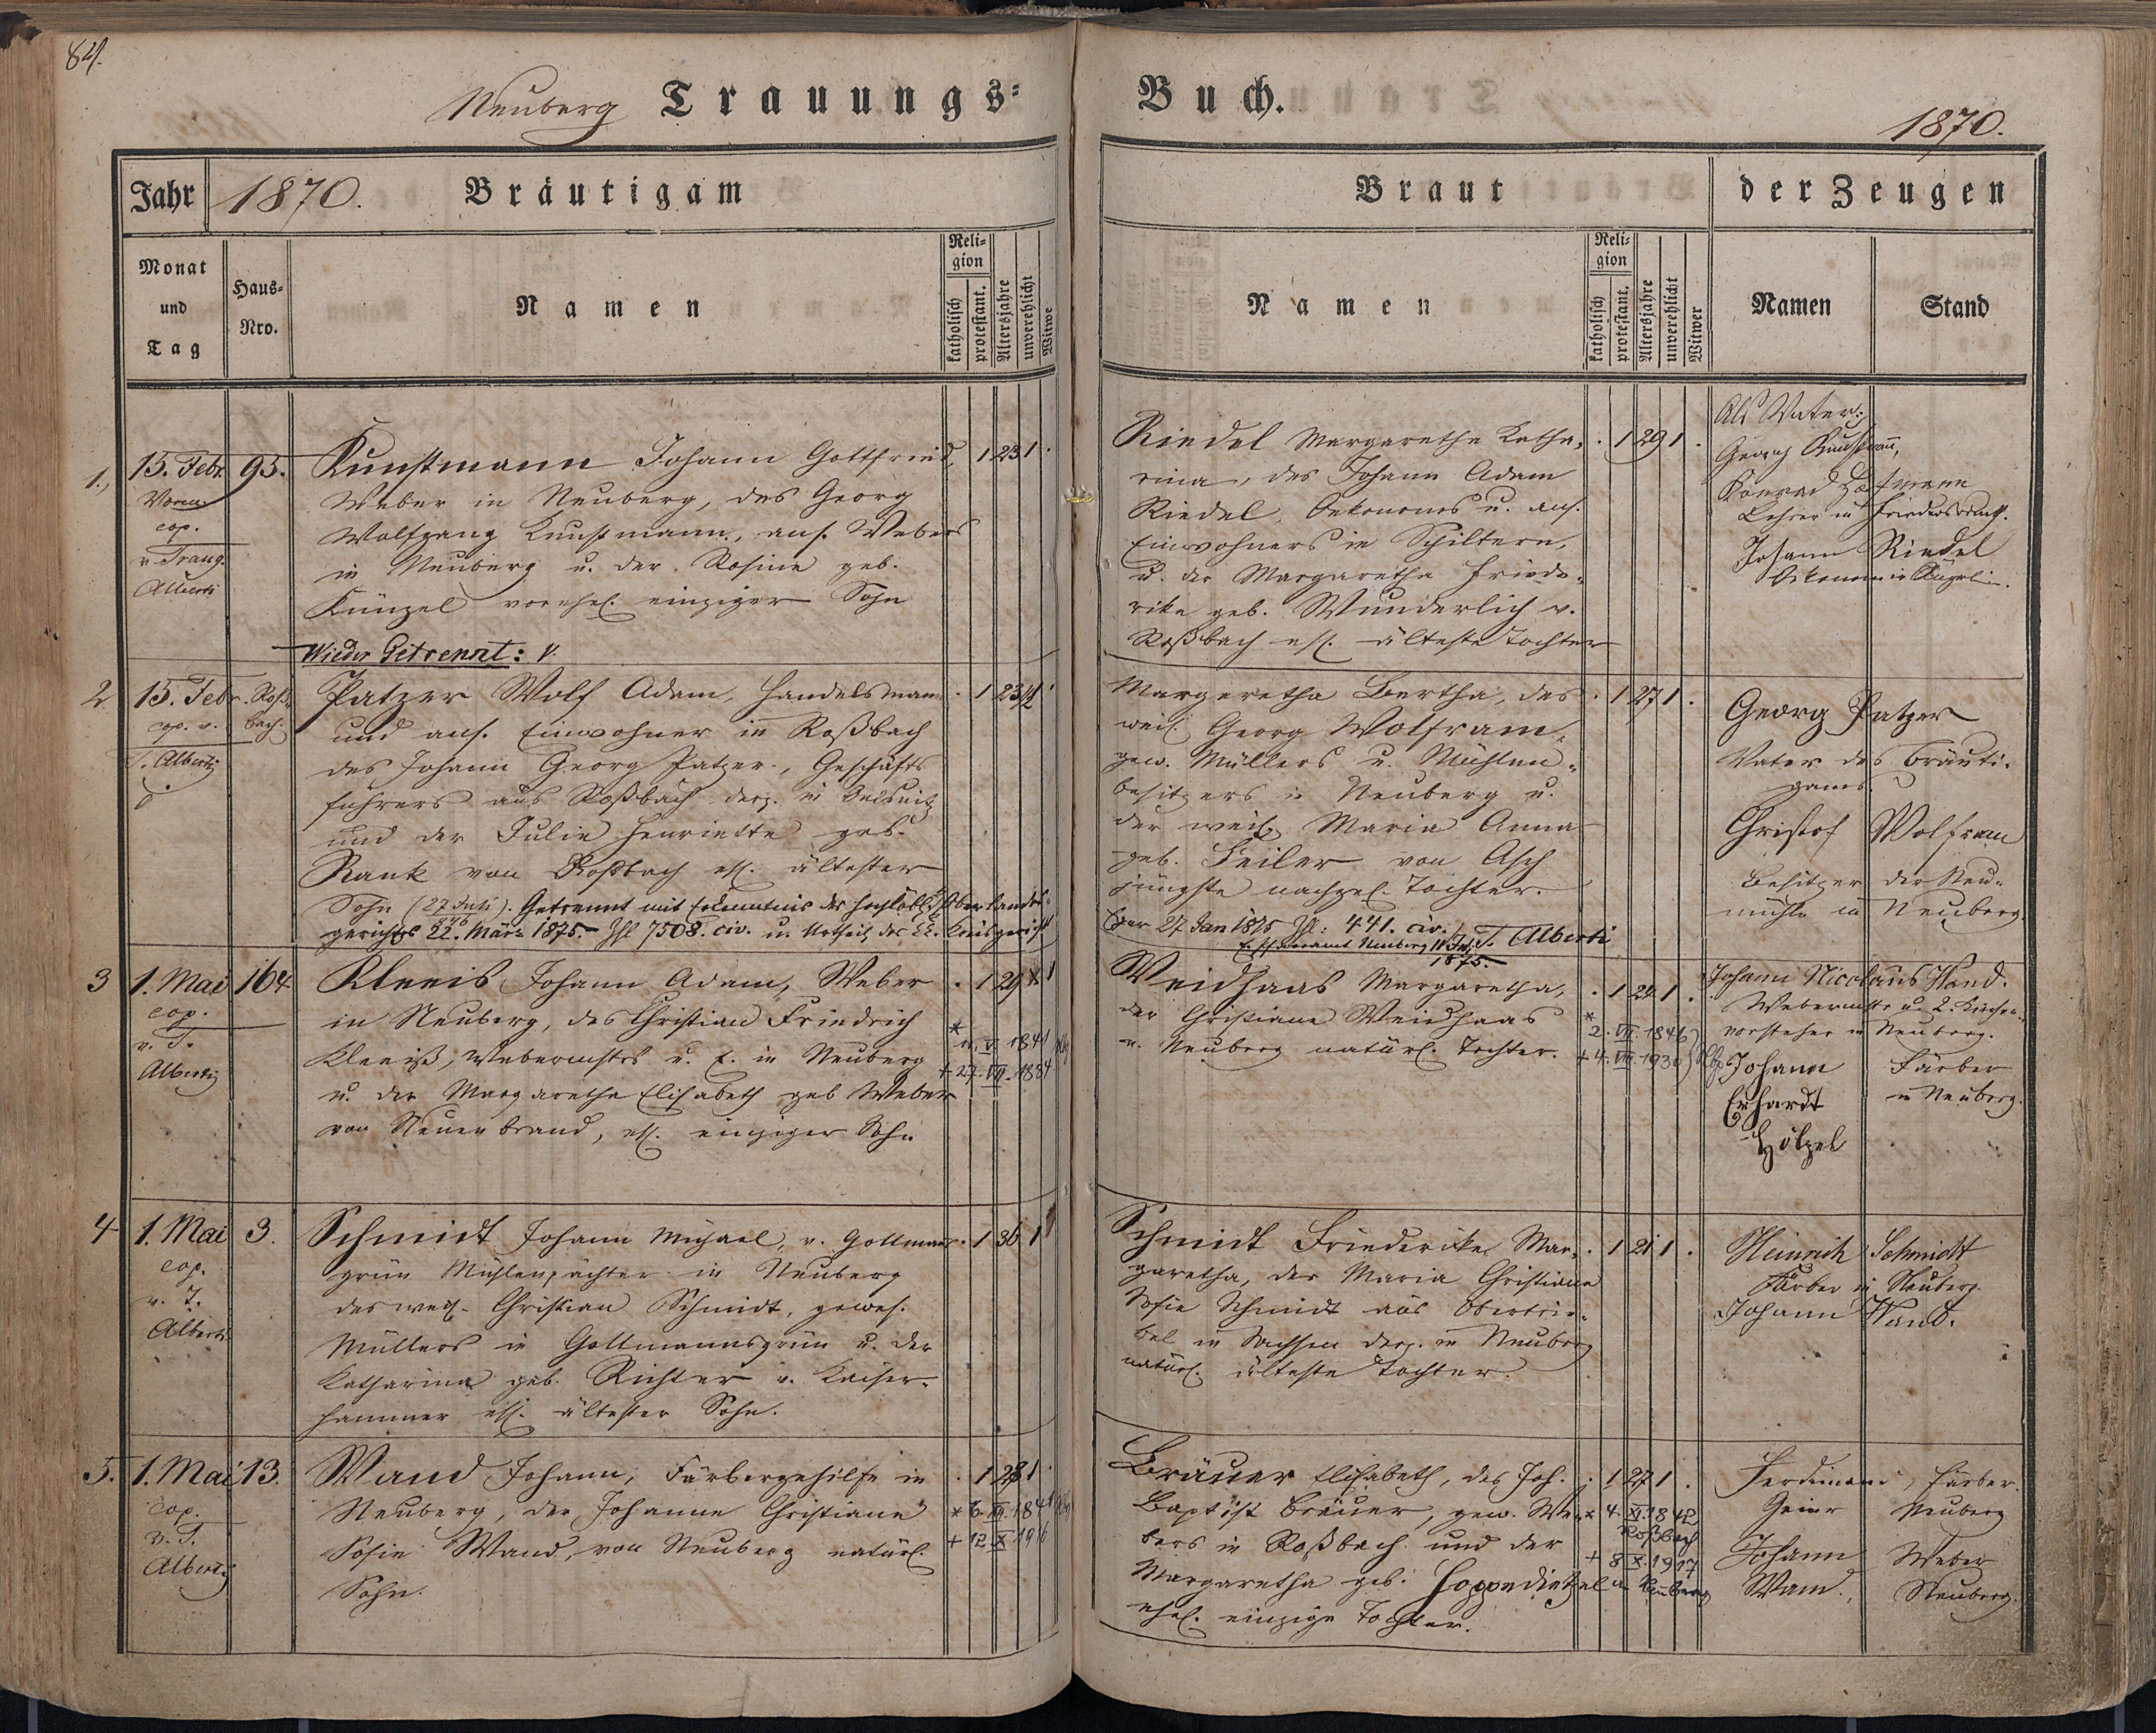 84.
Neuberg Trauungs=
Buch.
1870.
Jahr 1870. Bräutigam
Braut
der Zeugen
Monat und Tag
Haus= Nro.
Namen
Reli= gion
katholisch
protestant.
Altersjahre
unverehlicht
Witwe
Namen
Reli= gion
katholisch
protestant.
Altersjahre
unverehlicht
Witwer
Namen
Stand
1.,
15. Febr.
Vorm.
cop.
v. Traug.
Alberti
95.
Kunstmann Johann Gottfried, 1 23 1 .
Weber in Neuberg, des Georg
Wolfgang Kunstmann, ans. Webers
in Neuberg u. der Rosine geb.
Künzel vorehel. einziger Sohn
Riedel Margaretha Katha= . 1 29 1 .
rina, des Johann Adam
Riedel, Oekonoms u. ans.
Einwohners in Schiltern,
u. der Margaretha Friede=
rike geb. Wunderlich v.
Roßbach ehl. älteste Tochter
Als Vater:
Georg Kunstmann,
Konrad Hofmann
Lehrer in
Johann Riedel
Wieder Getrennt:
2
15. Febr.
cop. v.
T. Alberti
Roß= bach.
Patzer Wolf Adam, Handelsmann . 1 23 1 .
und ans. Einwohner in Roßbach
des Johann Georg Patzer, Geschäfts
führers aus Roßbach derz. in Oelsnitz
und der Julie Henriette geb.
Rank von Roßbach ehl. ältester
Sohn Getrennt mit Erkenntnis des hochlöbl. Oberlandes=
gerichts 22. März 1875. Zhl 7508. civ. u. Urtheil des k.k. Kreisgericht
Margeretha Bertha, des . 1 27 1 .
weil. Georg Wolfram,
gew. Müllers u. Mühlen=
besitzers in Neuberg u.
der weil. Maria Anna
geb. Feiler von Asch
jüngste nachgel. Tochter.
Eger 27 Jan 1875 Zhl: 441. civ. T. Alberti
1875.
Georg Patzer
Vater des Bräuti=
gams.
Christof Wolfram
Besitzer der Neu=
mühle in Neuberg
3
1. Mai
cop.
v. T.
Alberti
164
Kleeis Johann Adam, Weber . 1 29 1
in Neuberg, des Christian Friedrich
Kleeiß, Webermstrs u. E. in Neuberg
u. der Margaretha Elisabeth geb Weber
von Neuenbrand, ehl. einziger Sohn
* 11. V. 1841
+ 27. VII. 1884
Weidhaas Margaretha, . 1 24 1 .
der Christiane Weidhaas
v. Neuberg natürl. Tochter.
* 2. VII 1846
+ 4. VII. 1930
Johann Nicolaus Wand.
Webermstr u. 2. Kirchen=
vorsteher in Neuberg.
Johann Färber
Erhardt in Neuberg.
Hölzel
4
1. Mai
cop.
v. T.
Alberti
3.
Schmidt Johann Michael, v. Gottmanns= . 1 36 1
grün Mühlenpächter in Neuberg
des weil. Christian Schmidt, gewes.
Müllers in Gottmannsgrün u. der
Katharina geb. Richter v. Kaiser=
hammer ehl. ältester Sohn.
Schmidt Friedericke Mar= . 1 21 1 .
garetha, der Maria Christiana
Sofie Schmidt aus Obertrie=
bel in Sachsen derz. in Neuberg
natürl. älteste Tochter.
Heinrich Schmidt
Färber in Neuberg.
Johann Wand.
5.
1. Mai
cop.
v. T.
Alberti
13.
Wand Johann, Färbergehilfe in . 1 28 1 .
Neuberg, der Johanne Christiane
Sofie Wand, von Neuberg natürl.
Sohn.
+ 12 X 1916
Bräuer Elisabeth, des Joh. . 1 27 1 .
Baptist Bräuer, gew. We=
bers in Roßbach und der
Margaretha geb. Hoppendietzel
ehel. einzige Tochter.
* 4. XI. 1842
Roßbach
+ 8 X. 1917
in Neuberg
Ferdinand Färber
Geier Neuberg
Johann Weber
Wand. Neuberg.